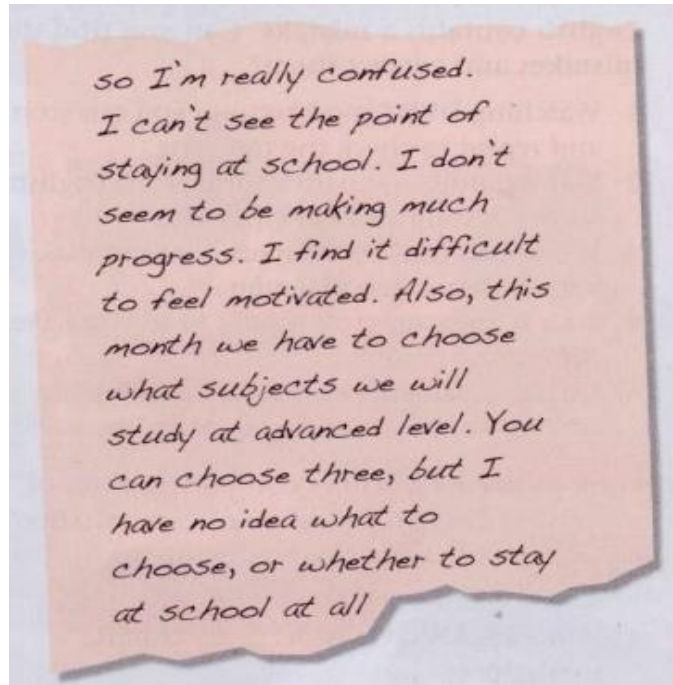 so I'm really confused.
I can't see the point of
staying at school. I don't
seem to be making much
progress. I find it difficult
to feel motivated. Also, this
month we have to choose
what subjects we will
study at advanced level. You
can choose three, but I
have no idea what to
choose, or whether to stay
at school at all